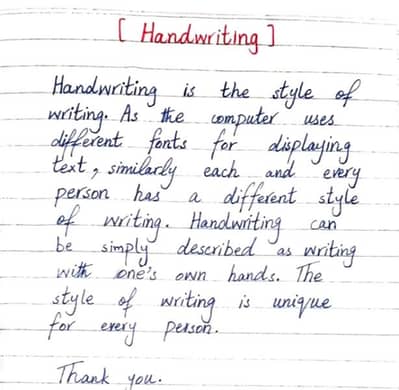 [ Handwriting ]
Handwriting is the style of
writing. As the computer uses
different fonts for displaying
text, similarly each and every
person has a different style
of writing. Handwriting can
be simply described as writing
with one's own hands. The
style of writing is unique
for every person.
Thank you.